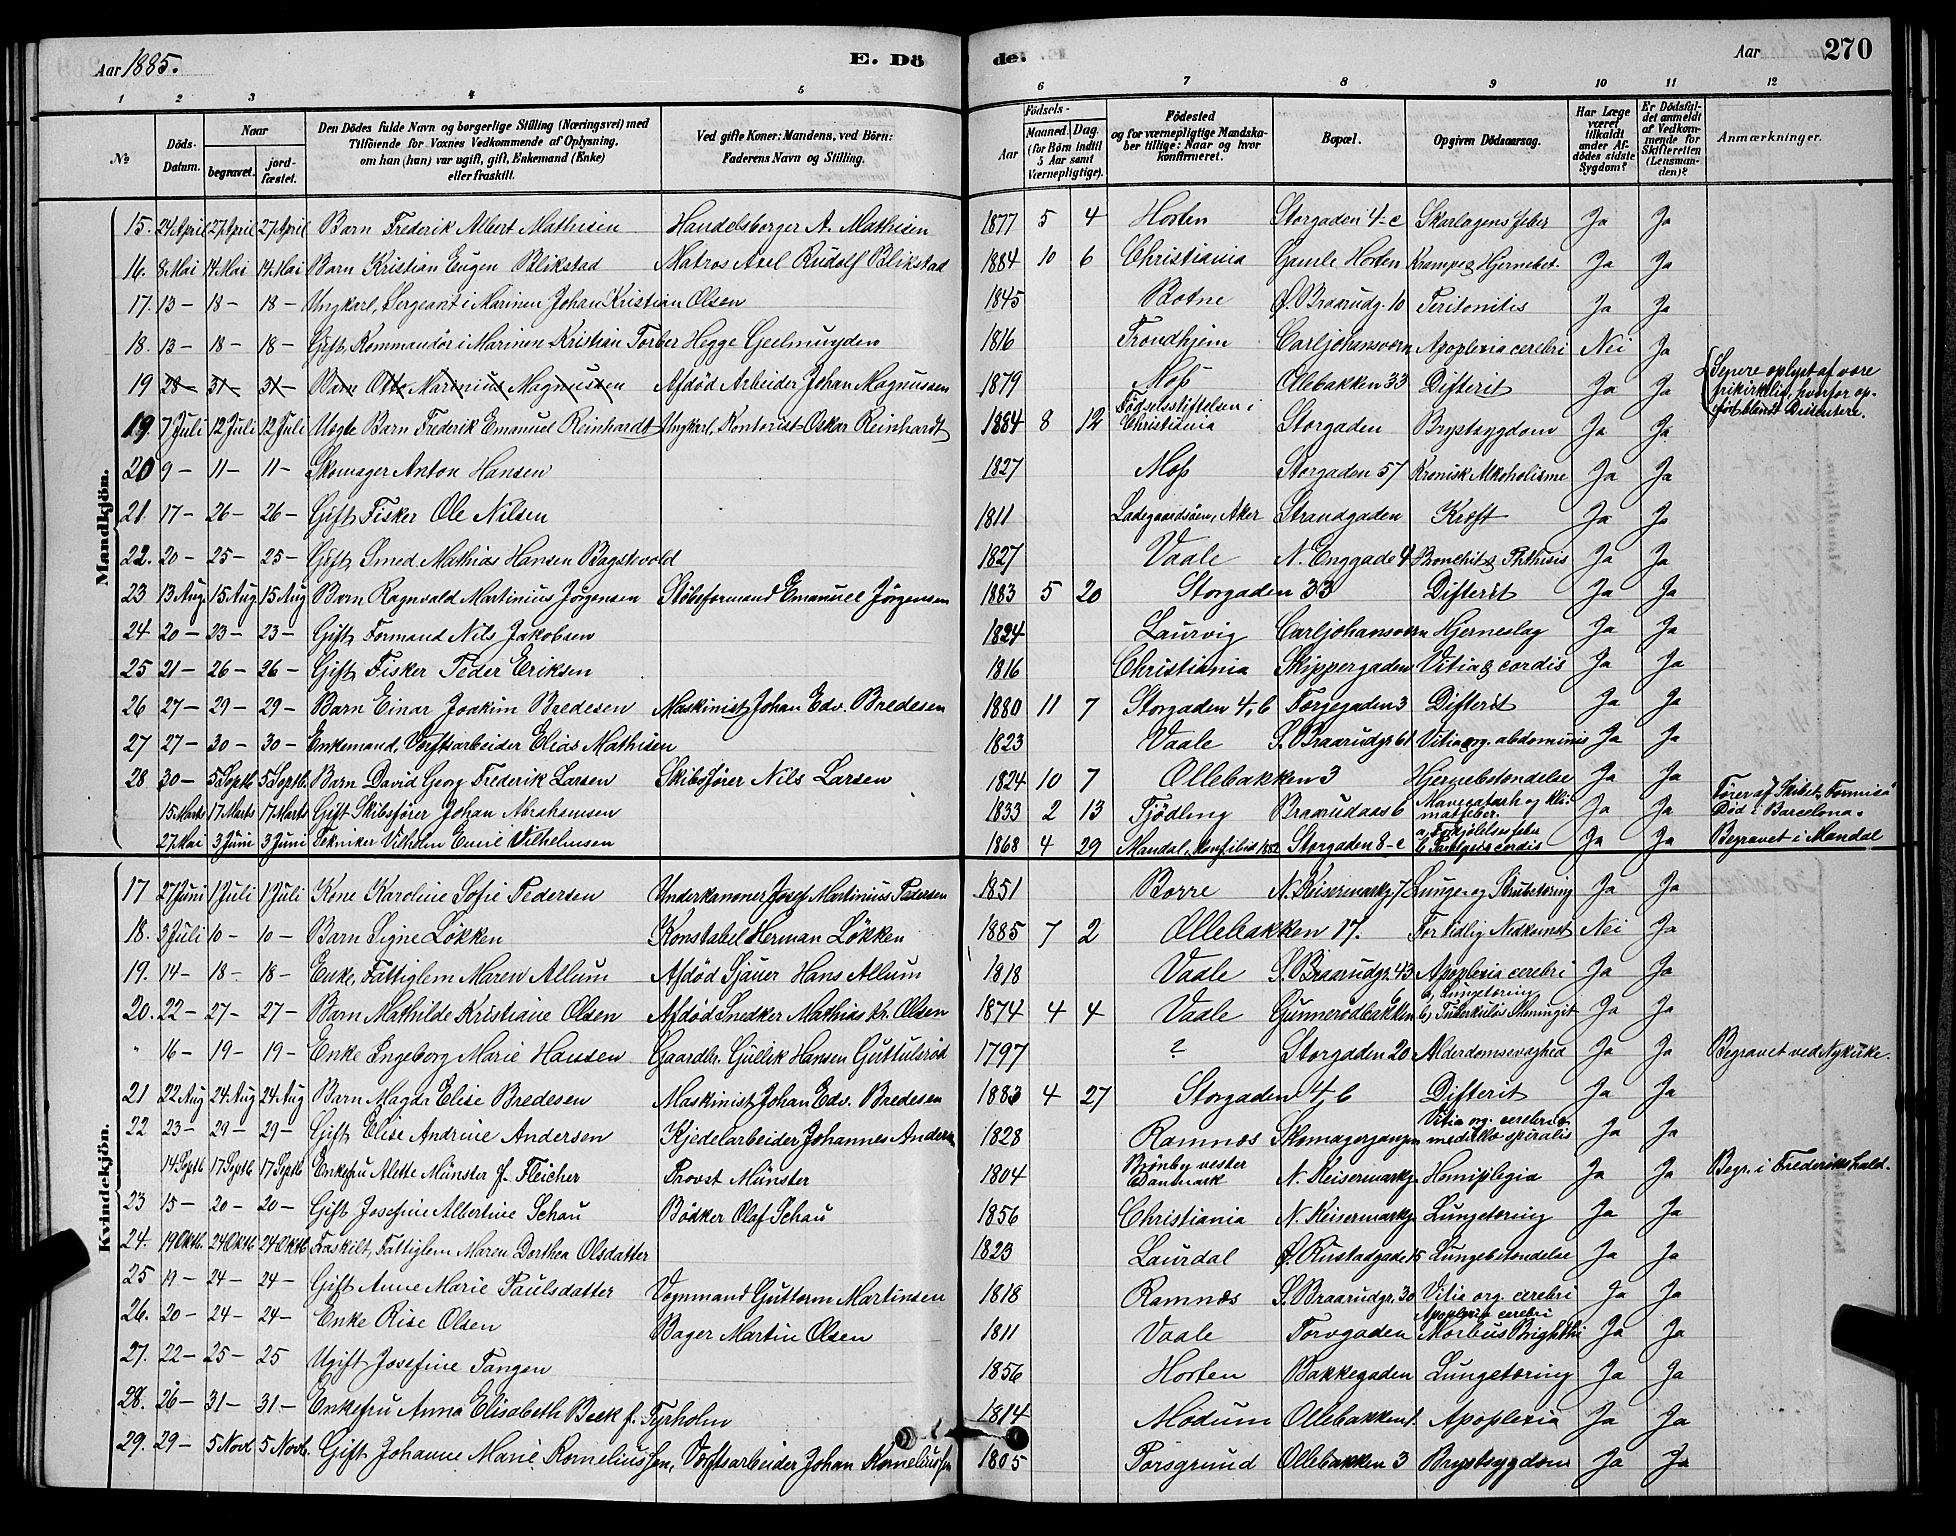 Aar 1885. E. Dö de. Aar 270
1 2 3 4 5 6 7 8 9 10 11 12
No Döds-Datum. Naar begravet. jord-fæstet. Den Dödes fulde Navn og borgerlige Stilling (Næringsvei) med Tilföiende for Voxnes Vedkommende af Oplysning, om han (hun) var ugift, gift, Enkemand (Enke) eller fraskilt. Ved gifte Koner: Mandens, ved Börn: Faderens Navn og Stilling. Födsels- Aar Maaned. Dag. (for Börn indtil 5 Aar samt Værnepligtige). Födested og for værnepligtige Mandskaber tillige: Naar og hvor konfirmeret. Bopæl. Opgiven Dödsaarsag. Har Læge været tilkaldt under Afdödes sidste Sygdom? Er Dödsfaldet anmeldt af Vedkommende for Skifteretten (Lensmanden)? Anmærkninger.
Mandkjön.
15. 24 April 27 April 27 April Barn Frederik Albert Mathisen Handelsborger A. Mathisen 1877 5 4 Horten Storgaden 4-c Skarlagensfeber Ja Ja
16. 8 Mai 14 Mai 14 Mai Barn Kristian Eugen Blikstad Matros Axel Rudolf Blikstad 1884 10 6 Christiania Gamle Horten Krampe & Hjernebet. Ja Ja
17. 13 - 18 - 18 - Ungkarl, Sergeant i Marinen Johan Kristian Olsen 1845 Botne Ø. Braarudg. 10 Peritonitis Ja Ja
18. 13 - 18 - 18 - Gift, Kommandör i Marinen Kristian Torber Hegge Geelmuyden 1816 Trondhjem Carljohansvern Apoplexia cerebri Nei Ja
19 28 - 31 - 31 - Barn Otto Marinius Magnussen Afdød Arbeider Johan Magnussen 1879 Moss Ollebakken 33 Difterit Ja Ja Senere oplyst af være frikirklig, hvorfor opført blandt Dissentere.
19. 7 Juli 12 Juli 12 Juli Uegte Barn Frederik Emanuel Reinhardt Ungkarl, Kontorist Oskar Reinhardt 1884 8 12 Födselsstiftelsen i Christiania Storgaden Brystsygdom Ja Ja
20 9 - 11 - 11 - Skomager Anton Hansen 1827 Moss Storgaden 57 Kronisk Alkoholisme Ja Ja
21. 17 - 26 - 26 - Gift Fisker Ole Nilsen 1811 Ladegaardsöen, Aker Strandgaden Kræft Ja Ja
22. 20 - 25 - 25 - Gift Smed Mathias Hansen Bagstevold 1827 Vaale N. Enggade 4 Bronchit & Phthisis Ja Ja
23 13 Aug. 15 Aug 15 Aug Barn Ragnvald Martinius Jørgensen Støbeformand Emanuel Jørgensen 1883 5 20 Storgaden 33 Difterit Ja Ja
24 20 - 23 - 23 - Gift, Formand Nils Jakobsen 1824 Laurvig Carljohansvern Hjerneslag Ja Ja
25 21 - 26 - 26 - Gift Fisker Peder Eriksen 1816 Christiania Skippergaden Vitia cordis Ja Ja
26 27 - 29 - 29 - Barn Einar Joakim Bredesen Maskinist Johan Edv. Bredesen 1880 11 7 Storgaden 4, b Færgegaden 3 Difterit Ja Ja
27 27 - 30 - 30 - Enkemand, Værftsarbeider Elias Mathisen 1823 Vaale S. Braarudgr 61 Vitia org. abdominis Ja Ja
28 30 - 5 Septb. 5 Septb. Barn David Georg Frederik Larsen Skibsfører Nils Larsen 1824 10 7 Ollebakken 3 Hjernebetændelse Ja Ja
15 Marts 17 Marts 17 Marts Gift Skibsfører Johan Abrahamsen 1833 2 13 Tjödling Braarudaas 6 Mavecatarh og Klimatfeber. Ja Ja Fører af Skibet "Formica" Død i Barcelona.
27 Mai 3 Juni 3 Juni Tekniker Vilhelm Emil Vilhelmsen 1868 4 29 Mandal, Konf. ibid 1882 Storgaden 8-c a, Forkjølelsesfeber b, Paralysis cordis Ja Ja Begravet i Mandal
Kvindekjön.
17 27 Juni 1 Juli 1 Juli Kone Karoline Sofie Pedersen Underkanoner Josef Martinius Pedersen 1851 Borre N. Keisermarkg. 7 c Lunge- og Strubetæring Ja Ja
18. 2 Juli 10 - 10 - Barn Signe Løkken Konstabel Herman Løkken 1885 7 2 Ollebakken 17. For tidlig Nedkomst Nei Ja
19. 14 - 18 - 18 - Enke, Fattiglem Maren Allum Afdød Sjauer Hans Allum 1818 Vaale S. Braarudgr. 43 Apoplexia cerebri Ja Ja
20. 22 - 27 - 27 - Barn Mathilde Kristiane Olsen Afdød Snedker Mathias Kr. Olsen 1874 4 4 Vaale Gunnerødbakken 6 a, Lungetæring b, Tuberkuløs Meningit Ja Ja
" 16 - 19 - 19 - Enke Ingeborg Marie Hansen Gaardbr. Gullik Hansen Guttulsrød 1797 ? Storgaden 20 Alderdomssvaghed Ja Ja Begravet ved Nykirke.
21 22 Aug 24 Aug 24 Aug Barn Magda Elise Bredesen Maskinist Johan Edv. Bredesen 1883 4 27 Storgaden 4, b Difterit Ja Ja
22 23 - 29 - 29 - Gift Elise Andrine Andersen Kjedelarbeider Johannes Andersen 1828 Ramnæs Skomagergangen Vitia org. cerebri & medullæ spiralis Ja Ja
14 Septb 17 Septb 17 Septb Enkefru Alette Münster f. Fleicher Provst Münster 1804 Brönby vester Danmark N. Keisermarkg. Hemiplegia Ja Ja Begr. i Frederikshald.
23 15 - 20 - 20 - Gift Josefine Albertine Schau Bödker Olaf Schau 1856 Christiania N. Keisermarkg. Lungetæring Ja Ja
24. 19 Oktb. 24 Oktb 24 Oktb. Fraskilt, Fattiglem Maren Dorthea Olsdatter 1823 Laurdal Ø. Rustadgade 15 Lungebetændelse Ja Ja
25 19 - 24 - 24 - Gift Anne Marie Paulsdatter Vognmand Guttorm Martinsen 1818 Ramnæs S. Braarudgr. 30 Vitia org. cerebri Ja Ja
26. 20 - 24 - 24 - Enke Rise Olsen Bager Martin Olsen 1811 Vaale Torvgaden Apoplexia cerebri Morbus Brighthi Ja Ja
27. 22 - 25 - 25 Ugift Josefine Tangen 1856 Horten Bakkegaden Lungetæring Ja Ja
28. 26 - 31 - 31 - Enkefru Anna Elisabeth Beck f. Tyrholm 1814 Modum Ollebakken 1. Apoplexia Ja Ja
29. 29 - 5 Novb. 5 Novb. Gift Johanne Marie Korneliussen, Værftsarbeider Johan Korneliussen 1805 Porsgrund Ollebakken 3 Brystsygdom Ja Ja